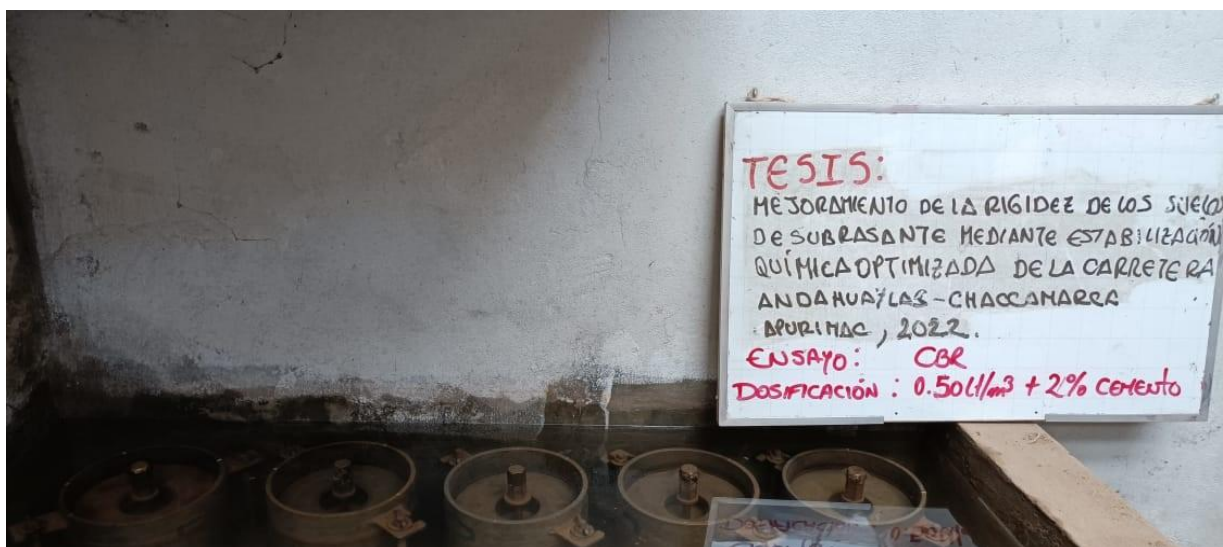 TESIS:
MEJORAMIENTO DE LA RIGIDEZ DE LOS SUELOS
DE SUBRASANTE MEDIANTE ESTABILIZACIÓN
QUÍMICA OPTIMIZADA DE LA CARRETERA
ANDAHUAYLAS-CHACCAMARCA
APURIMAC, 2022.
ENSAYO: CBR
DOSIFICACIÓN : 0.50 Lt/m3 + 2% CEMENTO
DOSIFICACIÓN :